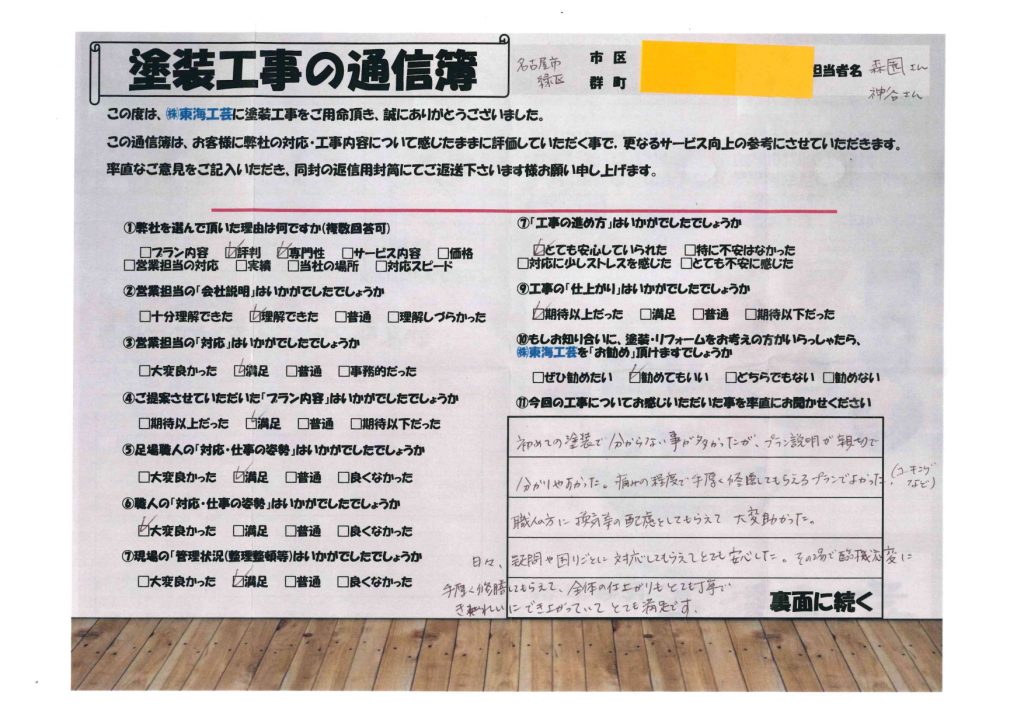 塗装工事の通信簿
名古屋市
緑区
市 区
群 町
担当者名 森園さん
神谷さん
この度は、㈱東海工芸に塗装工事をご用命頂き、誠にありがとうございました。
この通信簿は、お客様に弊社の対応・工事内容について感じたままに評価していただく事で、更なるサービス向上の参考にさせていただきます。
率直なご意見をご記入いただき、同封の返信用封筒にてご返送下さいます様お願い申し上げます。
①弊社を選んで頂いた理由は何ですか(複数回答可)
□プラン内容 ☑評判 ☑専門性 □サービス内容 □価格
□営業担当の対応 □実績 □当社の場所 □対応スピード
②営業担当の「会社説明」はいかがでしたでしょうか
□十分理解できた ☑理解できた □普通 □理解しづらかった
③営業担当の「対応」はいかがでしたでしょうか
□大変良かった ☑満足 □普通 □事務的だった
④ご提案させていただいた「プラン内容」はいかがでしたでしょうか
□期待以上だった ☑満足 □普通 □期待以下だった
⑤足場職人の「対応・仕事の姿勢」はいかがでしたでしょうか
□大変良かった ☑満足 □普通 □良くなかった
⑥職人の「対応・仕事の姿勢」はいかがでしたでしょうか
☑大変良かった □満足 □普通 □良くなかった
⑦現場の「管理状況(整理整頓等)はいかがでしたでしょうか
□大変良かった ☑満足 □普通 □良くなかった
⑦「工事の進め方」はいかがでしたでしょうか
☑とても安心していられた □特に不安はなかった
□対応に少しストレスを感じた □とても不安に感じた
⑨工事の「仕上がり」はいかがでしたでしょうか
☑期待以上だった □満足 □普通 □期待以下だった
⑩もしお知り合いに、塗装・リフォームをお考えの方がいらっしゃたら、
㈱東海工芸を「お勧め」頂けますでしょうか
□ぜひ勧めたい ☑勧めてもいい □どちらでもない □勧めない
⑪今回の工事についてお感じいただいた事を率直にお聞かせください
初めての塗装で分からない事が多かったが、プラン説明が親切で
分かりやすかった。痛みの程度で手厚く修繕してもらえるプランでよかった。(コーキングなど)
職人の方に換気等の配慮をしてもらえて 大変助かった。
日々、疑問や困りごとに対応してもらえてとても安心した。その場で臨機応変に
手厚く修繕してもらえて、全体の仕上がりもとても丁寧で
きれいにでき上がっていて とても満足です。
裏面に続く